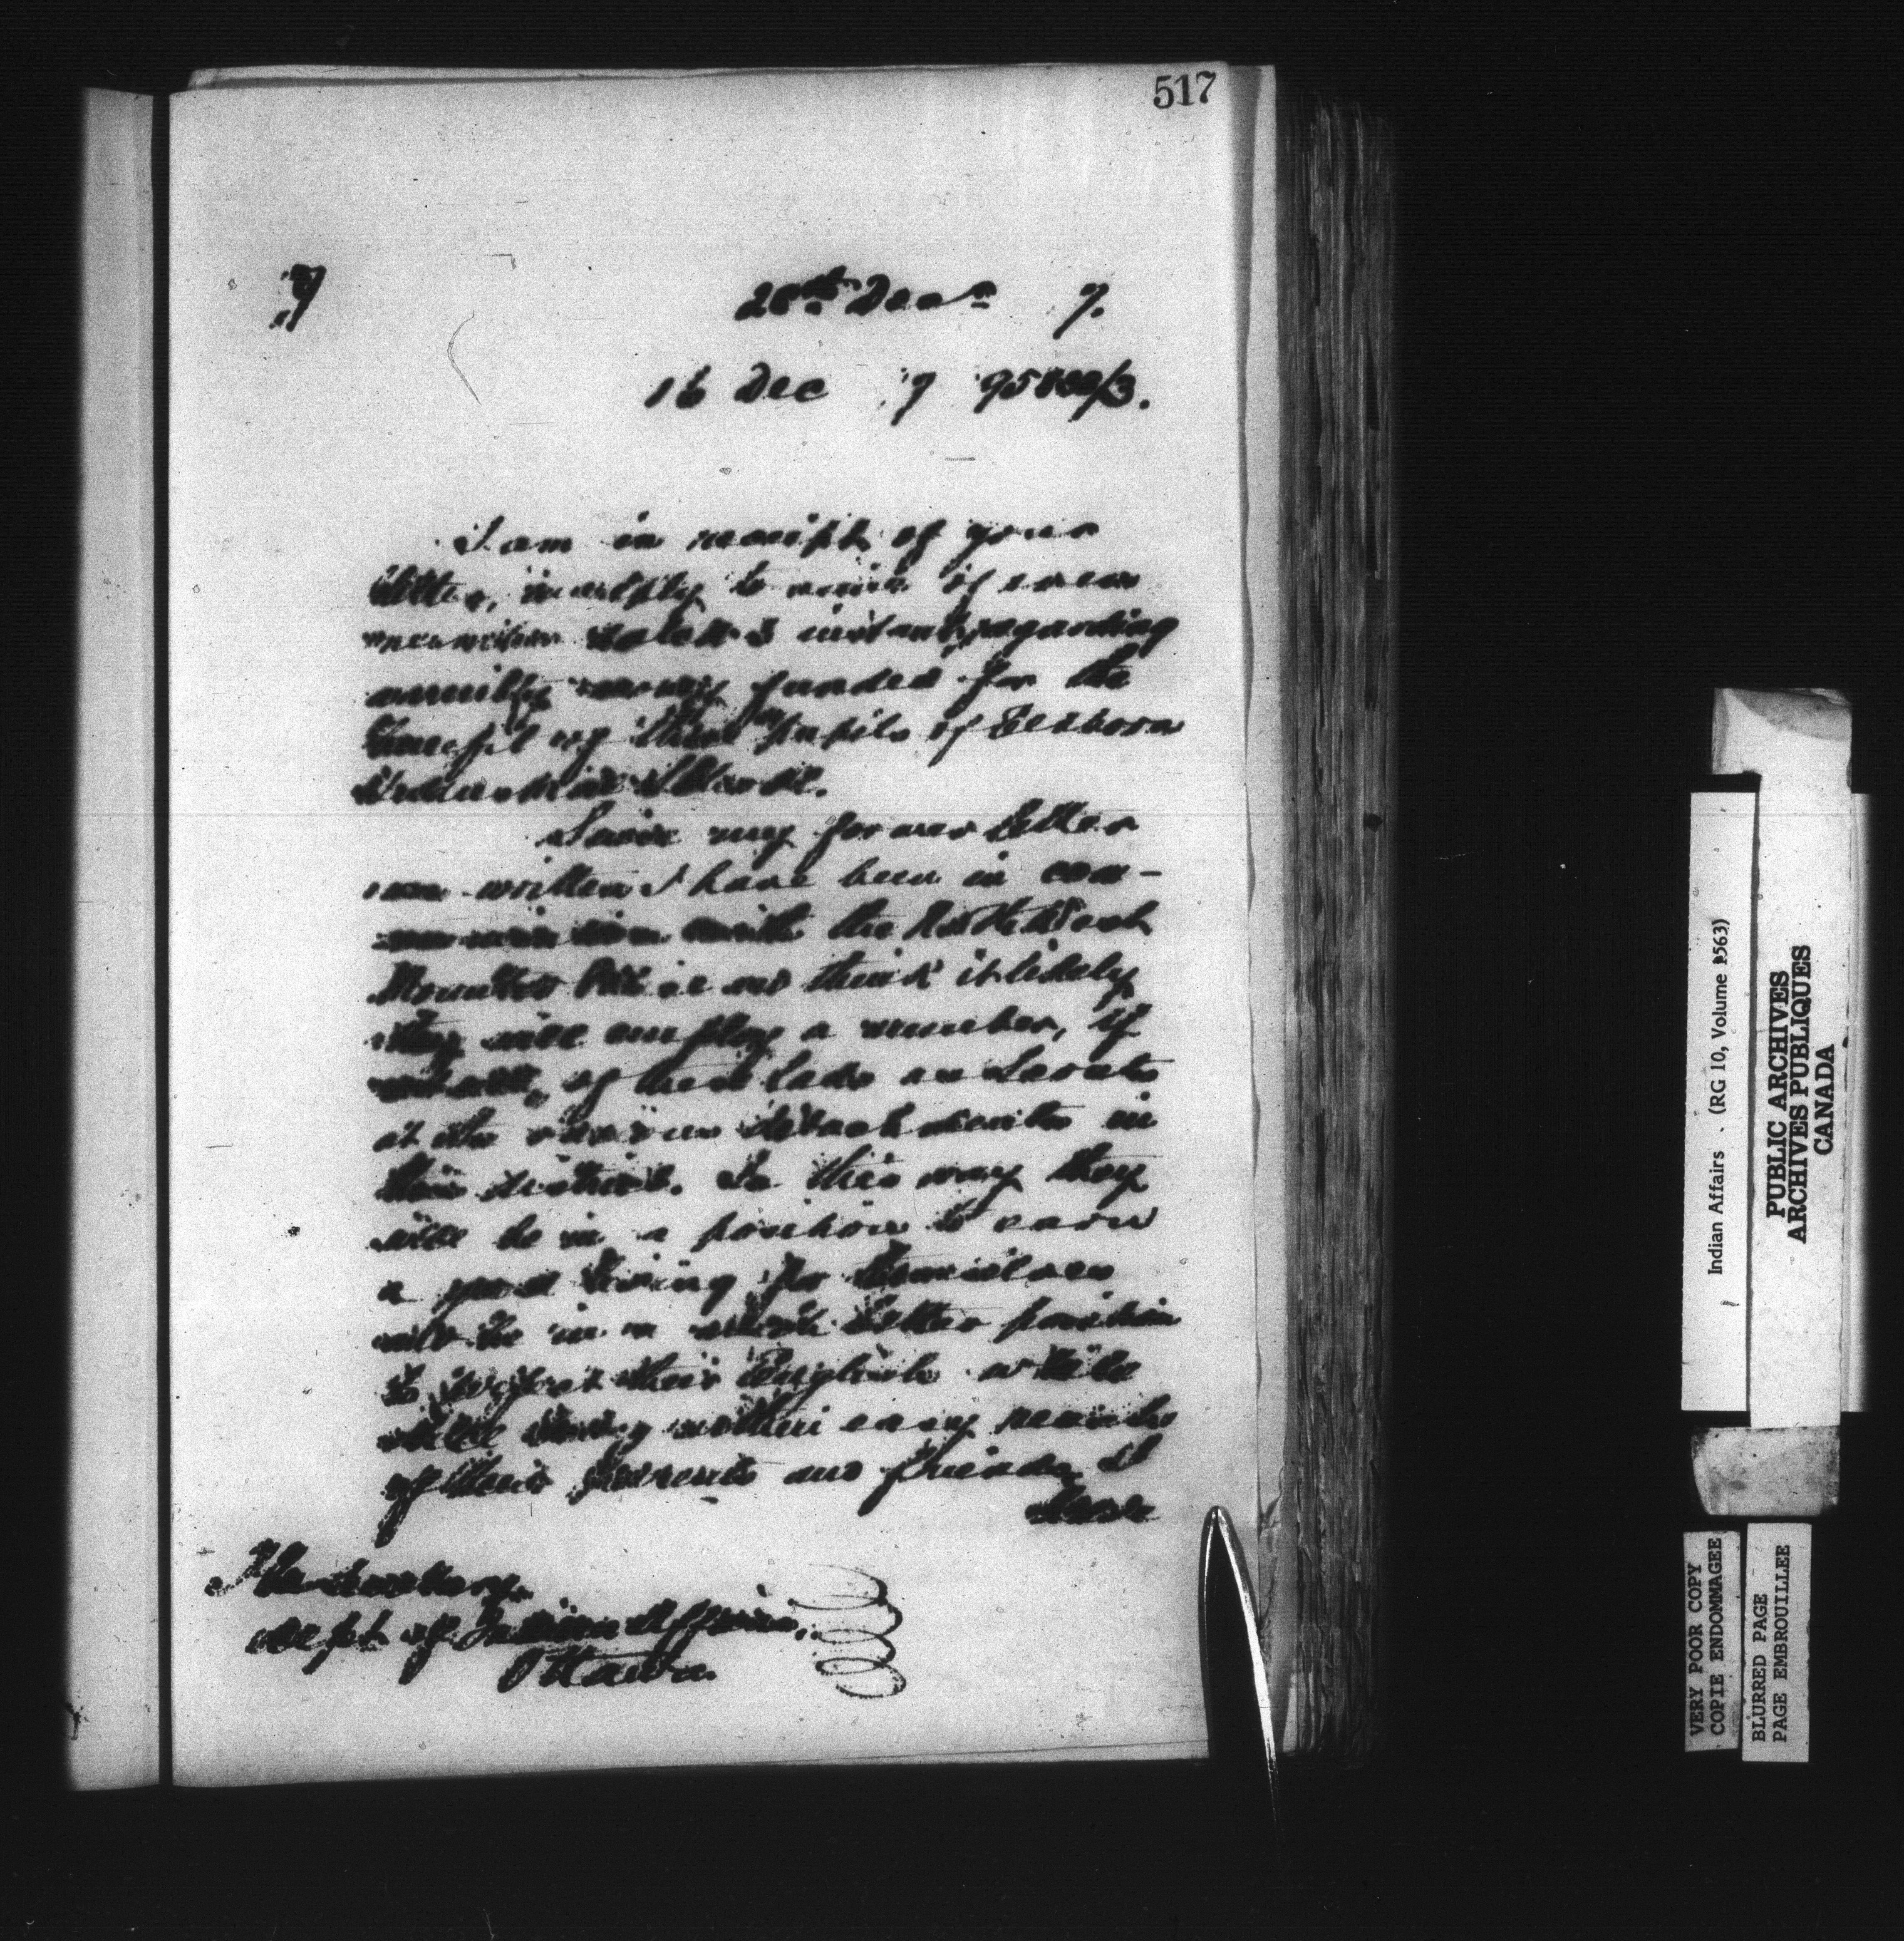 517
7 28th Dec 7.
16 Dec 7 95833/3.
I am in receipt of your
letter, in reply to mine of even
number dated 3 instant, regarding
annuity money funded for the
benefit of pupils of Elkhorn
Since my former letter
was written I have been in com-
munication with the North West
Mounted Police and think it likely
they will employ a number, if
not all, of these lads as Scouts
at the various detachments in
this district. In this way they
will be in a position to earn
a good living for themselves
and be in a much better position
to perfect their English while
while living within easy reach
of their parents and friends. I
have
The Secretary,
Dept of Indian Affairs,
Ottawa.
Indian Affairs . (RG 10, Volume 1563)
PUBLIC ARCHIVES
ARCHIVES PUBLIQUES
CANADA
VERY POOR COPY
COPIE ENDOMMAGEE
BLURRED PAGE
PAGE EMBROUILLEE